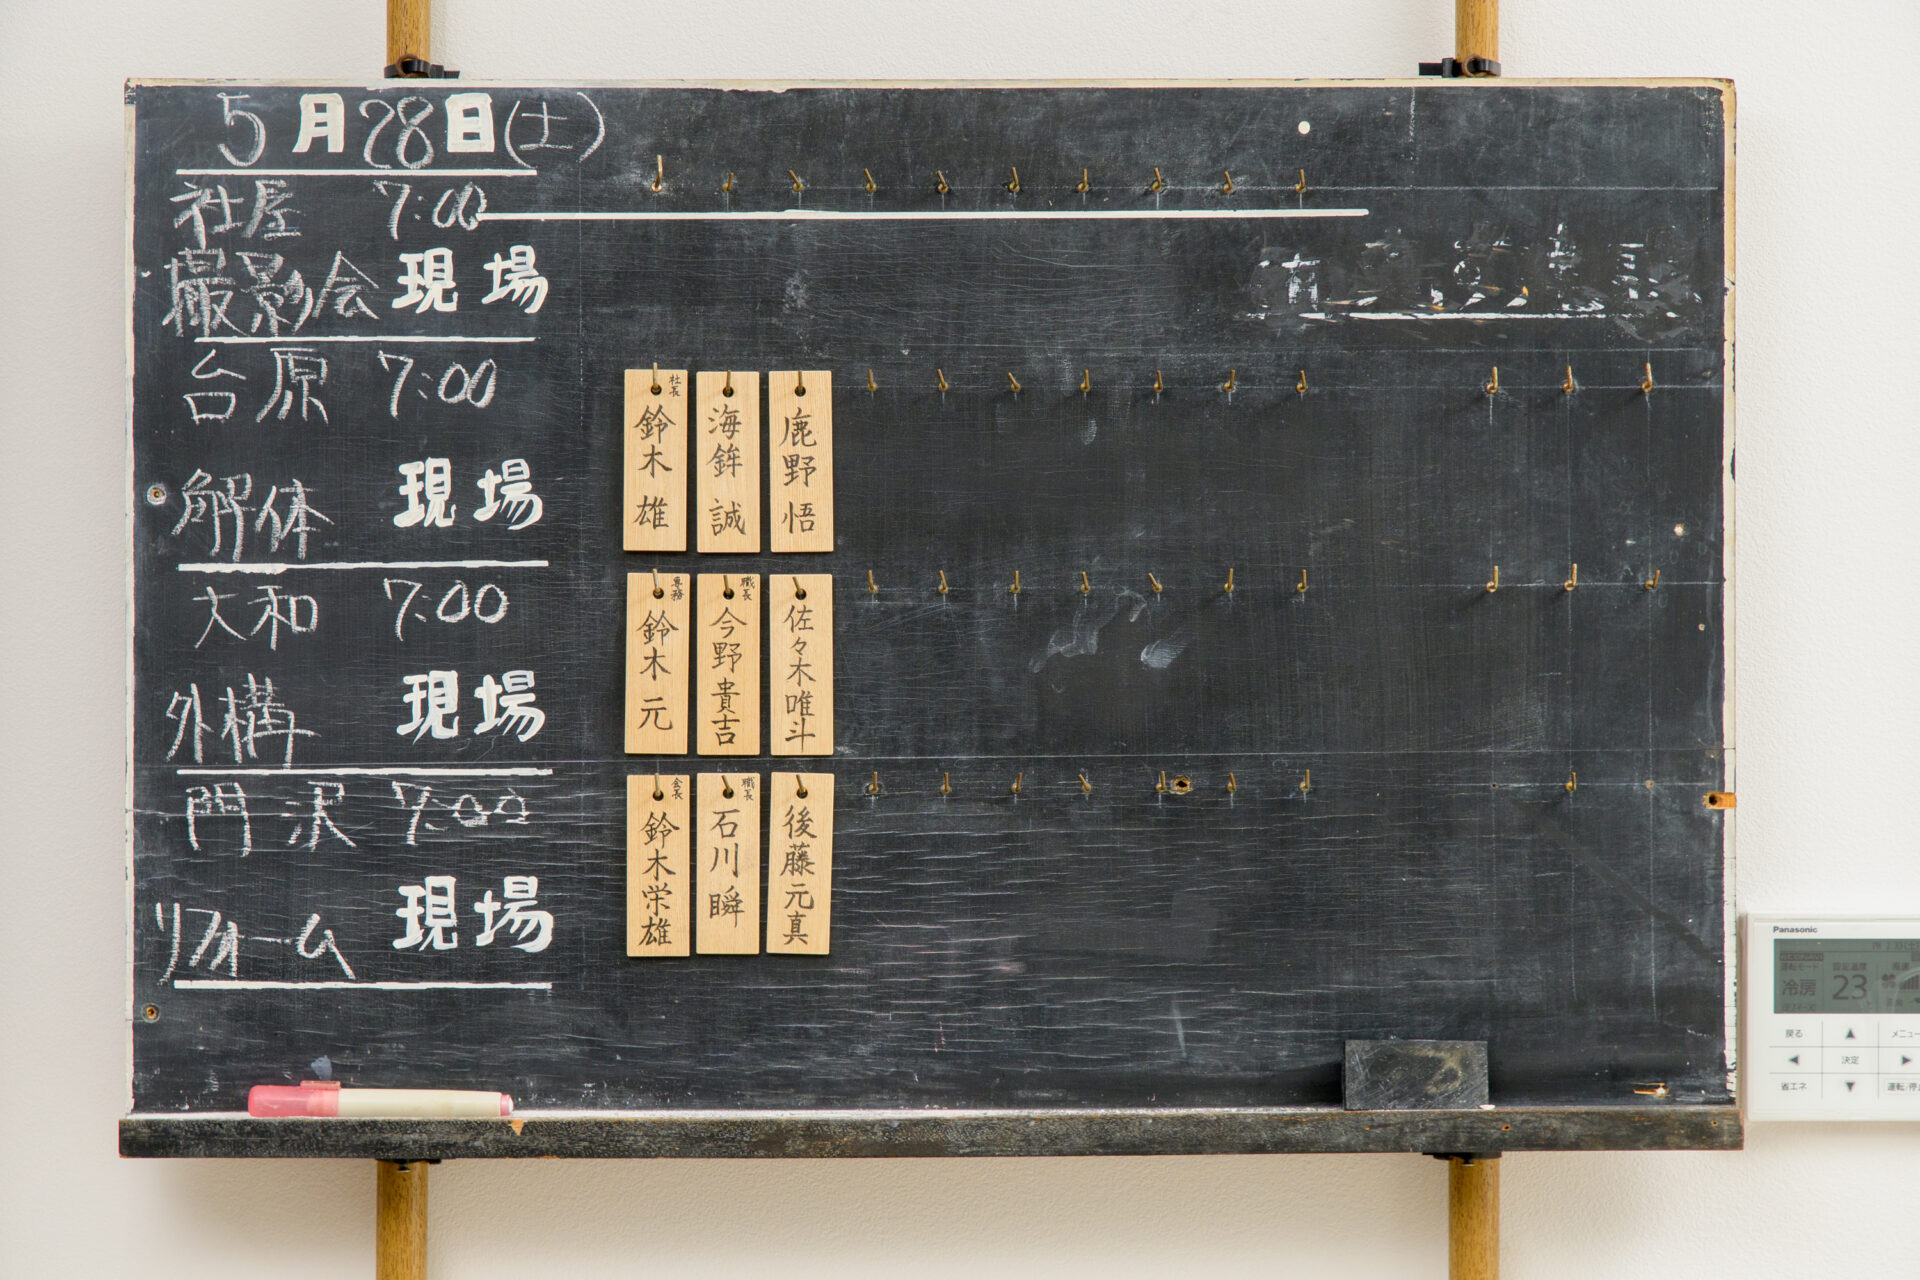 5月28日(土)
社屋 7:00
撮影会 現場
台原 7:00
解体 現場
大和 7:00
外構 現場
門沢 7:00
リフォーム 現場
社長
鈴木雄
海鉾誠
鹿野悟
専務
鈴木元
職長
今野貴吉
佐々木唯斗
会長
鈴木栄雄
職長
石川瞬
後藤元真
Panasonic
運転モード 設定温度 風速
冷房 23
戻る ▲ メニュー
◀ 決定 ▶
省エネ ▼ 運転/停止